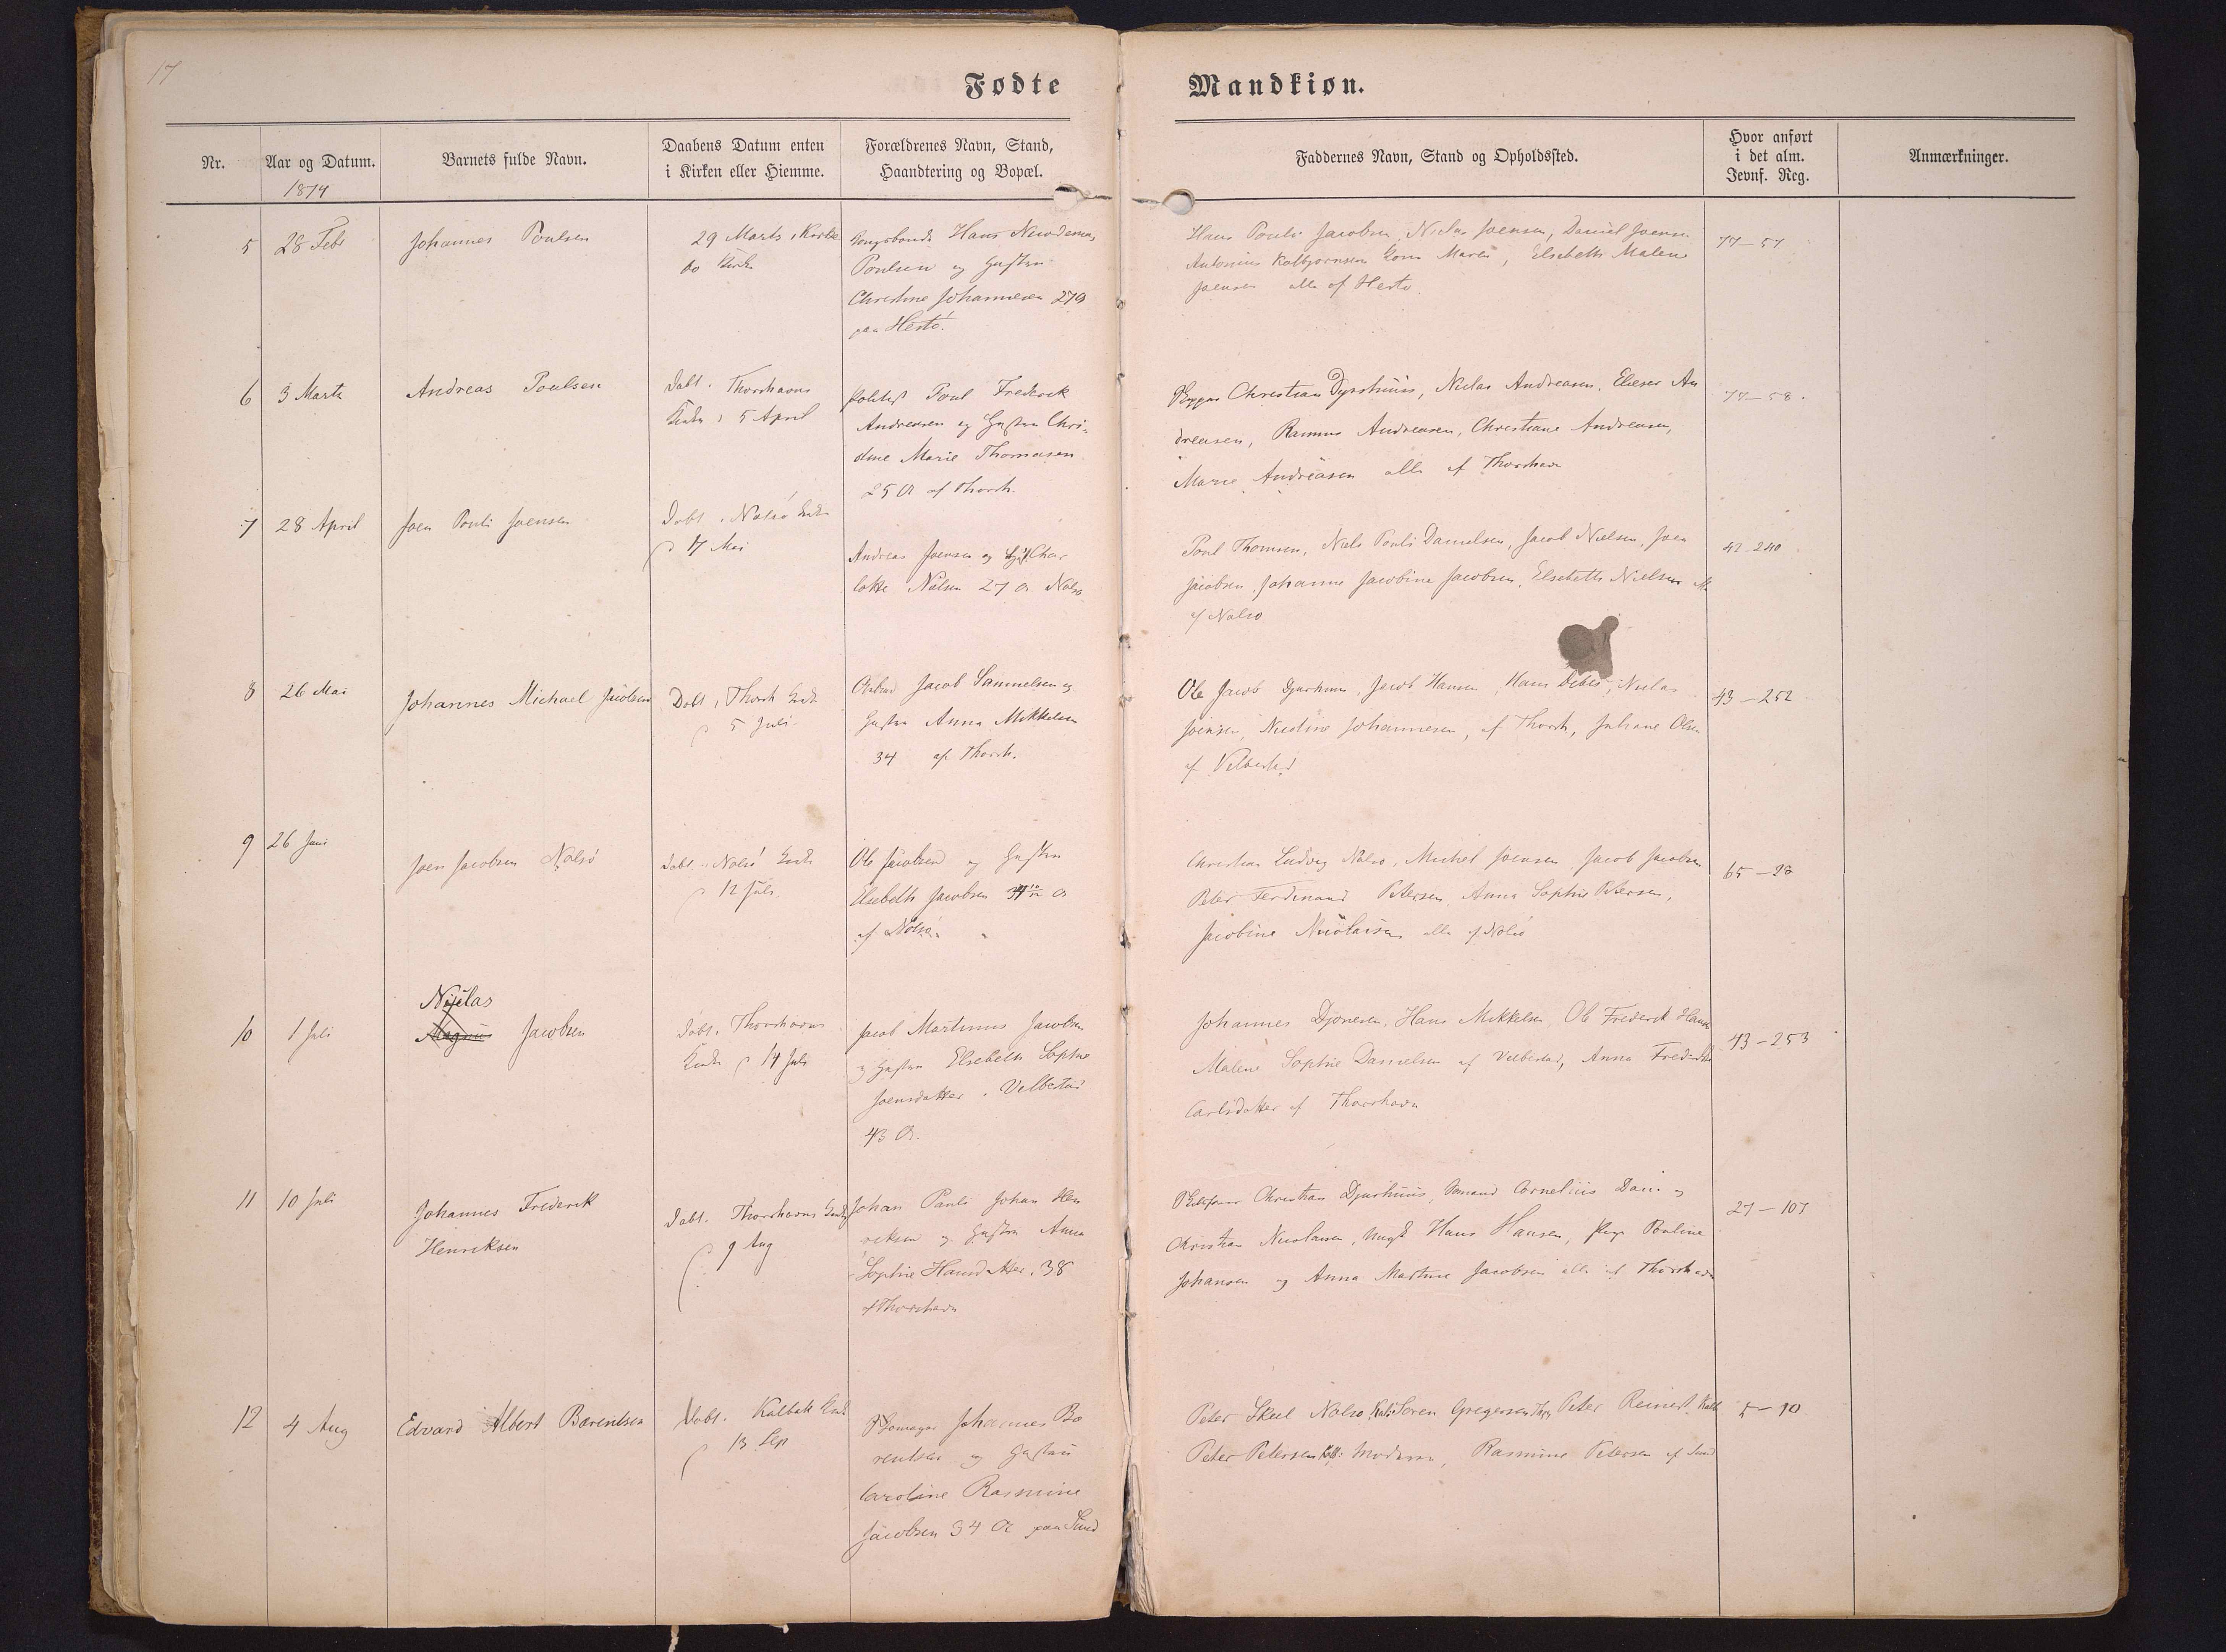 17
Fødte
Mandkiøn.
Nr.
Aar og Datum.
1874
Barnets fulde Navn.
Daabens Datum enten
i Kirken eller Hiemme.
Forældrenes Navn, Stand,
Haandtering og Bopæl.
Faddernes Navn, Stand og Opholdssted.
Hvor anført
i det alm.
Jevnf. Reg.
Anmærkninger.
5
28 Feb
Johannes Poulsen
29 Marts i Kirke
bo
Kongsbonde Hans Nicodemus
Poulsen og Hustru
Christine Johannesen 27 a
paa Hestø.
Hans Pouli Jacobsen, Niclas Joensen, Daniel Joensen
Antonius Kolbjørnsen Maria, Elsebeth Malene
Joensen alle af Hestø.
77-57
6
3 Marts
Andreas Poulsen
Døbt i Thorshavns
Kirke 5 April
Poul Frederik
Andreasen og Hustru Chri-
stine Marie Thomasen
25 A af Thorsh.
Christian Djurshuus, Niclas Andreasen, Elieser An
dreasen, Rasmus Andreasen, Christiane Andreasen,
Marie Andreasen alle af Thorshavn
77-58.
7
28 April
Joen Pouli Joensen
Døbt i Nolsø Kirke
17 Mai
Andreas Joensen og Hust Char
lotte Nielsen 27 A Nolsø
Poul Thomsen, Niels Pouli Danielsen, Jacob Nielsen, Joen
Jacobsen, Johanne Jacobine Jacobsen, Elsebeth Nielsen
af Nolsø
42-240
8
26 Mai
Johannes Michael Jacobsen
Døbt i Thorsh Kirke
5 Juli
Jacob Samuelsen og
Hustru Anna Mikkelsen
34 af Thorsh.
Ole Jacob Djurhuus, Jacob Hansen, Hans Debes, Niclas
Joensen, Johannesen, af Thorsh, Juliane Olsen
af Velbestad
43-252
9
26 Juni
Joen Jacobsen Nolsø
Døbt i Nolsø Kirke
12 Juli
Ole Jacobsen og Hustru
Elsebeth Jacobsen
af Nolsø
Christian Ludvig Nolsø, Michel Joensen, Jacob Jacobsen
Peter Ferdinand Petersen, Anna Sophie Petersen,
Jacobine Nicolaisen alle af Nolsø
65-28
Niclas
10
1 Juli
Magnus Jacobsen
Døbt i Thorshavns
Kirke 14 Juli
Jacob Martinus Jacobsen
og Hustru Elsebeth Sophie
Joensdatter i Velbestad
43 A.
Johannes Djonesen, Hans Mikkelsen, Ole Frederik Hansen
Malene Sophie Danielsen af Velbestad, Anna Frederikke
Carlsdatter af Thorshavn
43-253
11
10 Juli
Johannes Frederik
Henriksen
Døbt i Thorshavns Kirke
9 Aug
Johan Pauli Johan Hen
riksen og Hustru Anna
Sophie Hansdatter 38
af Thorshavn
Christian Djurhuus, Cornelius Dam og
Christian Nicolaisen, Hans Hansen, Pige Pouline
Johansen og Anna Martine Jacobsen alle af Thorshavn
27-107
12
4 Aug
Edvard Albert Barentsen
Døbt i Kalbak Kirke
13 Sep
Johannes Ba
rentsen og Hustru
Caroline Rasmine
Jacobsen 34 A paa Sund
Peter Skeel Nolsø, Søren Gregersen, Peter Reinert, Kalb
Peter Petersen Kalb: Moderen, Rasmine Petersen af Sund
5-10